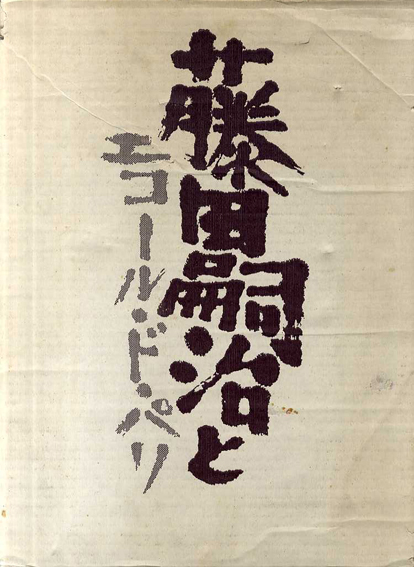 藤田嗣治と
エコール・ド・パリ